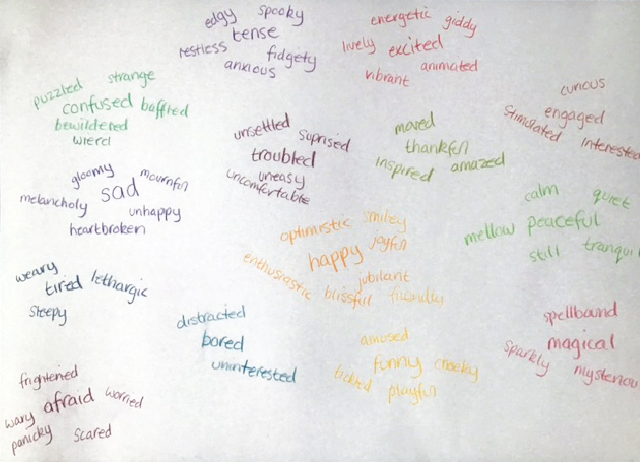 edgy spooky
tense
restless fidgety
anxious
energetic giddy
lively excited
vibrant animated
puzzled strange
confused baffled
bewildered
wierd
unsettled suprised
troubled
uneasy
uncomfortable
moved
thankful
inspired amazed
curious
engaged
stimulated interested
gloomy mournful
sad
melancholy unhappy
heartbroken
optimistic smiley
happy joyful
jubilant
enthusiastic blissful friendly
calm quiet
mellow peaceful
still tranqui
weary
tired lethargic
sleepy
distracted
bored
uninterested
amused
funny cheeky
tickled playful
spellbound
magical
sparkly mysteriou
frightened
wary afraid worried
panicky scared